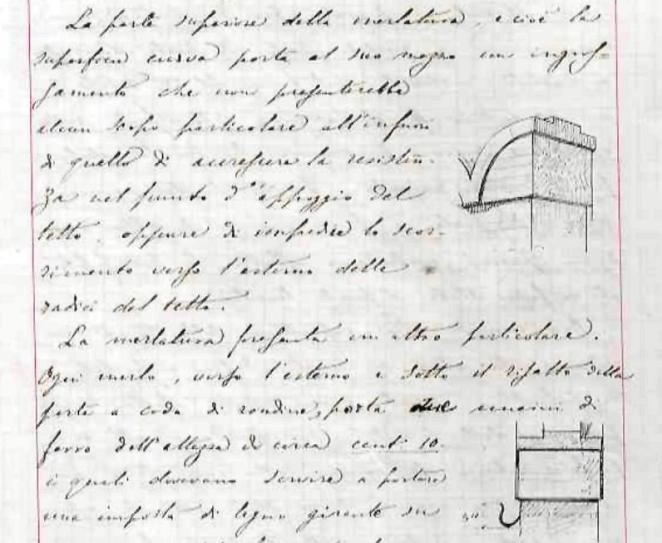 La parte superiore della merlatura, e cioè la
superficie curva porta al suo mezzo un ingros=
samento che non presenterebbe
alcun scopo particolare all'infuori
di quello di accrescere la resisten-
za nel punto d'appoggio del
tetto, oppure di impedire lo scor-
rimento verso l'esterno delle
radici del tetto.
La merlatura presenta un altro particolare.
Ogni merlo, verso l'esterno e sotto il risalto della
parte a coda di rondine, porta due uncini di
ferro dell'altezza di circa cent: 10.
i quali dovevano servire a portare
una imposta di legno girente su